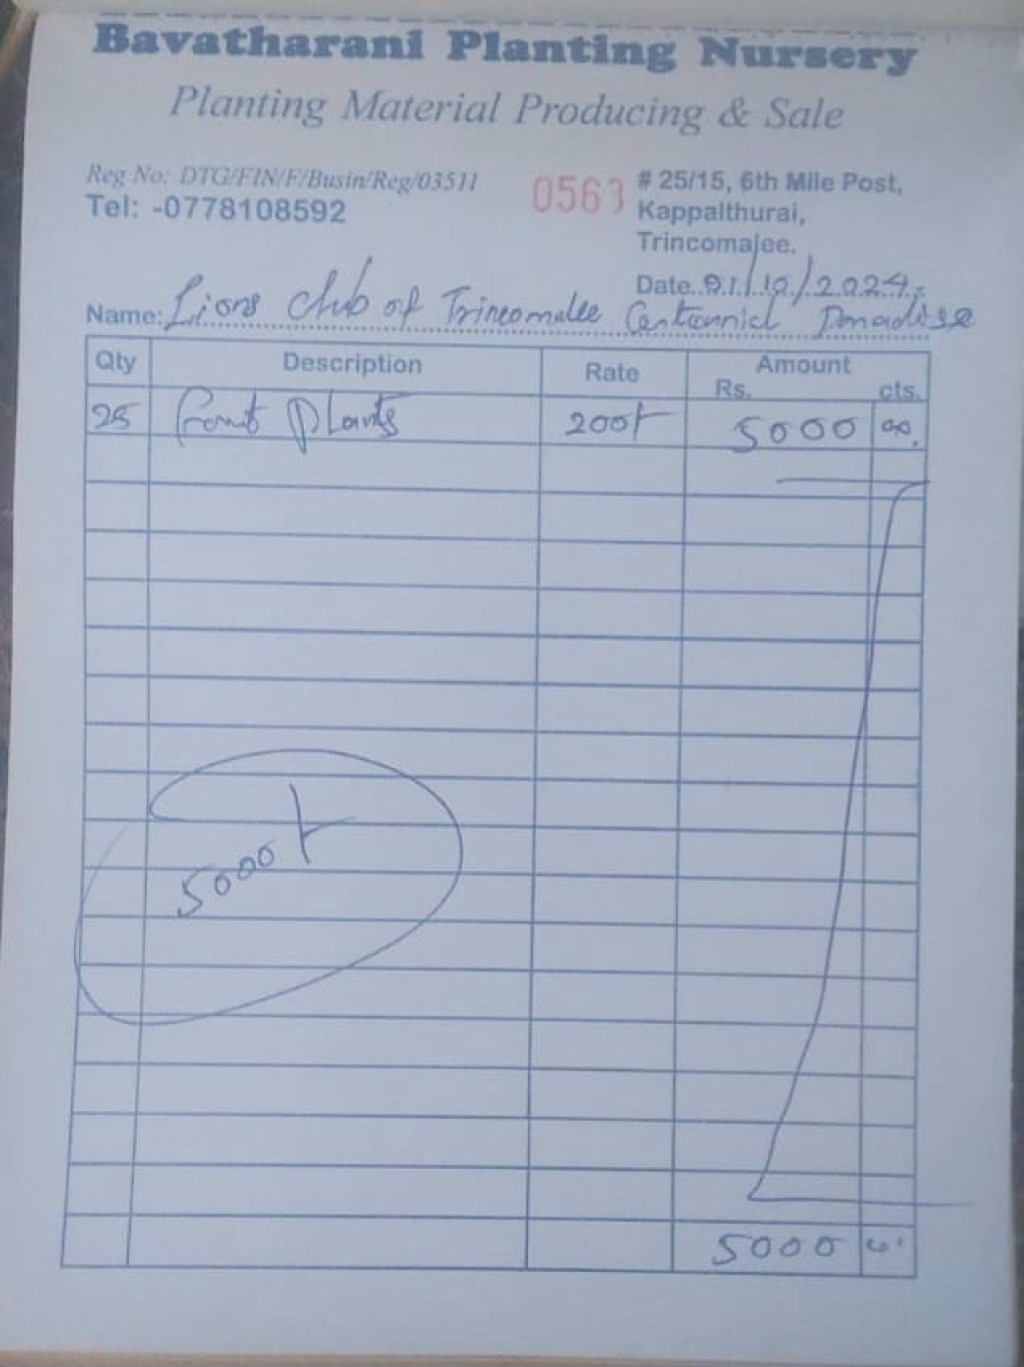 Bavatharani Planting Nursery
Planting Material Producing & Sale
Reg No: DTG/FIN/F/Busin/Reg/03511
Tel: -0778108592
0563
# 25/15, 6th Mile Post,
Kappalthurai,
Trincomalee.
Date. 01/10/2024.
Name: Lions Club of Trincomalee Centennial
Qty Description Rate Amount
Rs. cts.
25 Fruit Plants 200/- 5000 00.
5000/-
5000 00